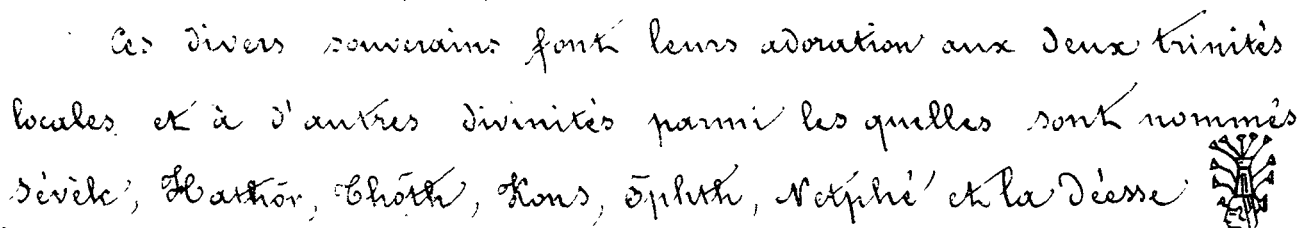 Ces divers souverains font leurs adoration aux deux trinités
locales et à d'autres divinités parmi les quelles sont nommés
Sévèk, Hathôr, Thôth, Kons, Ophth, Netphé et la Déesse